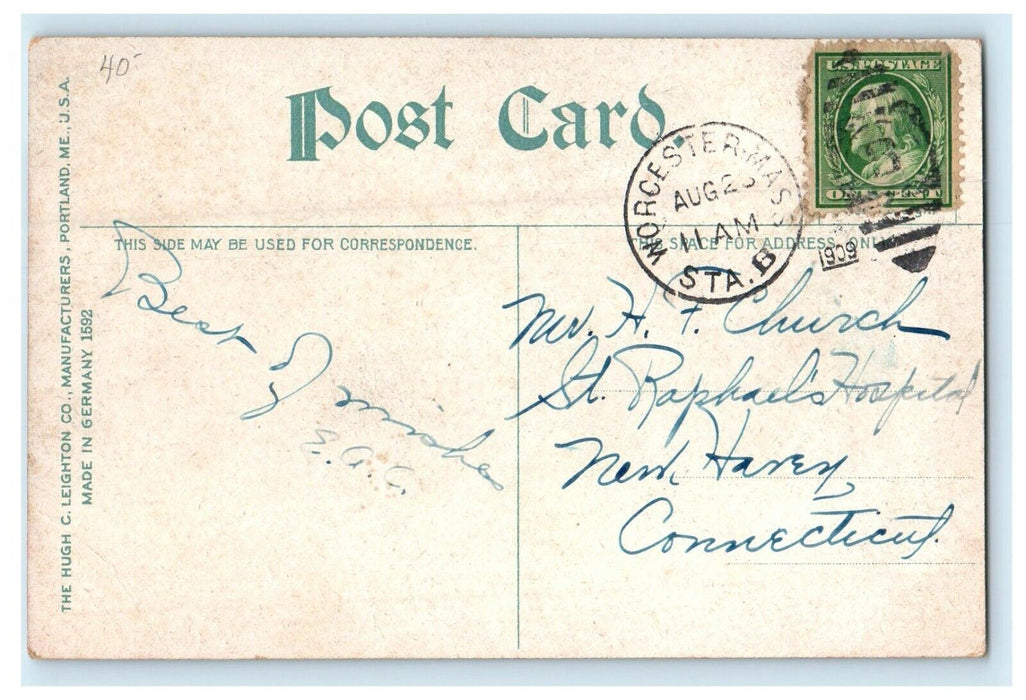 40-
Post Card.
U.S. POSTAGE
ONE CENT
WORCESTER, MASS.
AUG 23
11 AM
STA. B
1909
THIS SIDE MAY BE USED FOR CORRESPONDENCE.
THIS SPACE FOR ADDRESS ONLY
Best
wishes
Mr. H. F. Church
St. Raphael's Hospital
New Haven,
Connecticut.
THE HUGH C. LEIGHTON CO., MANUFACTURERS, PORTLAND, ME., U.S.A.
MADE IN GERMANY 1592